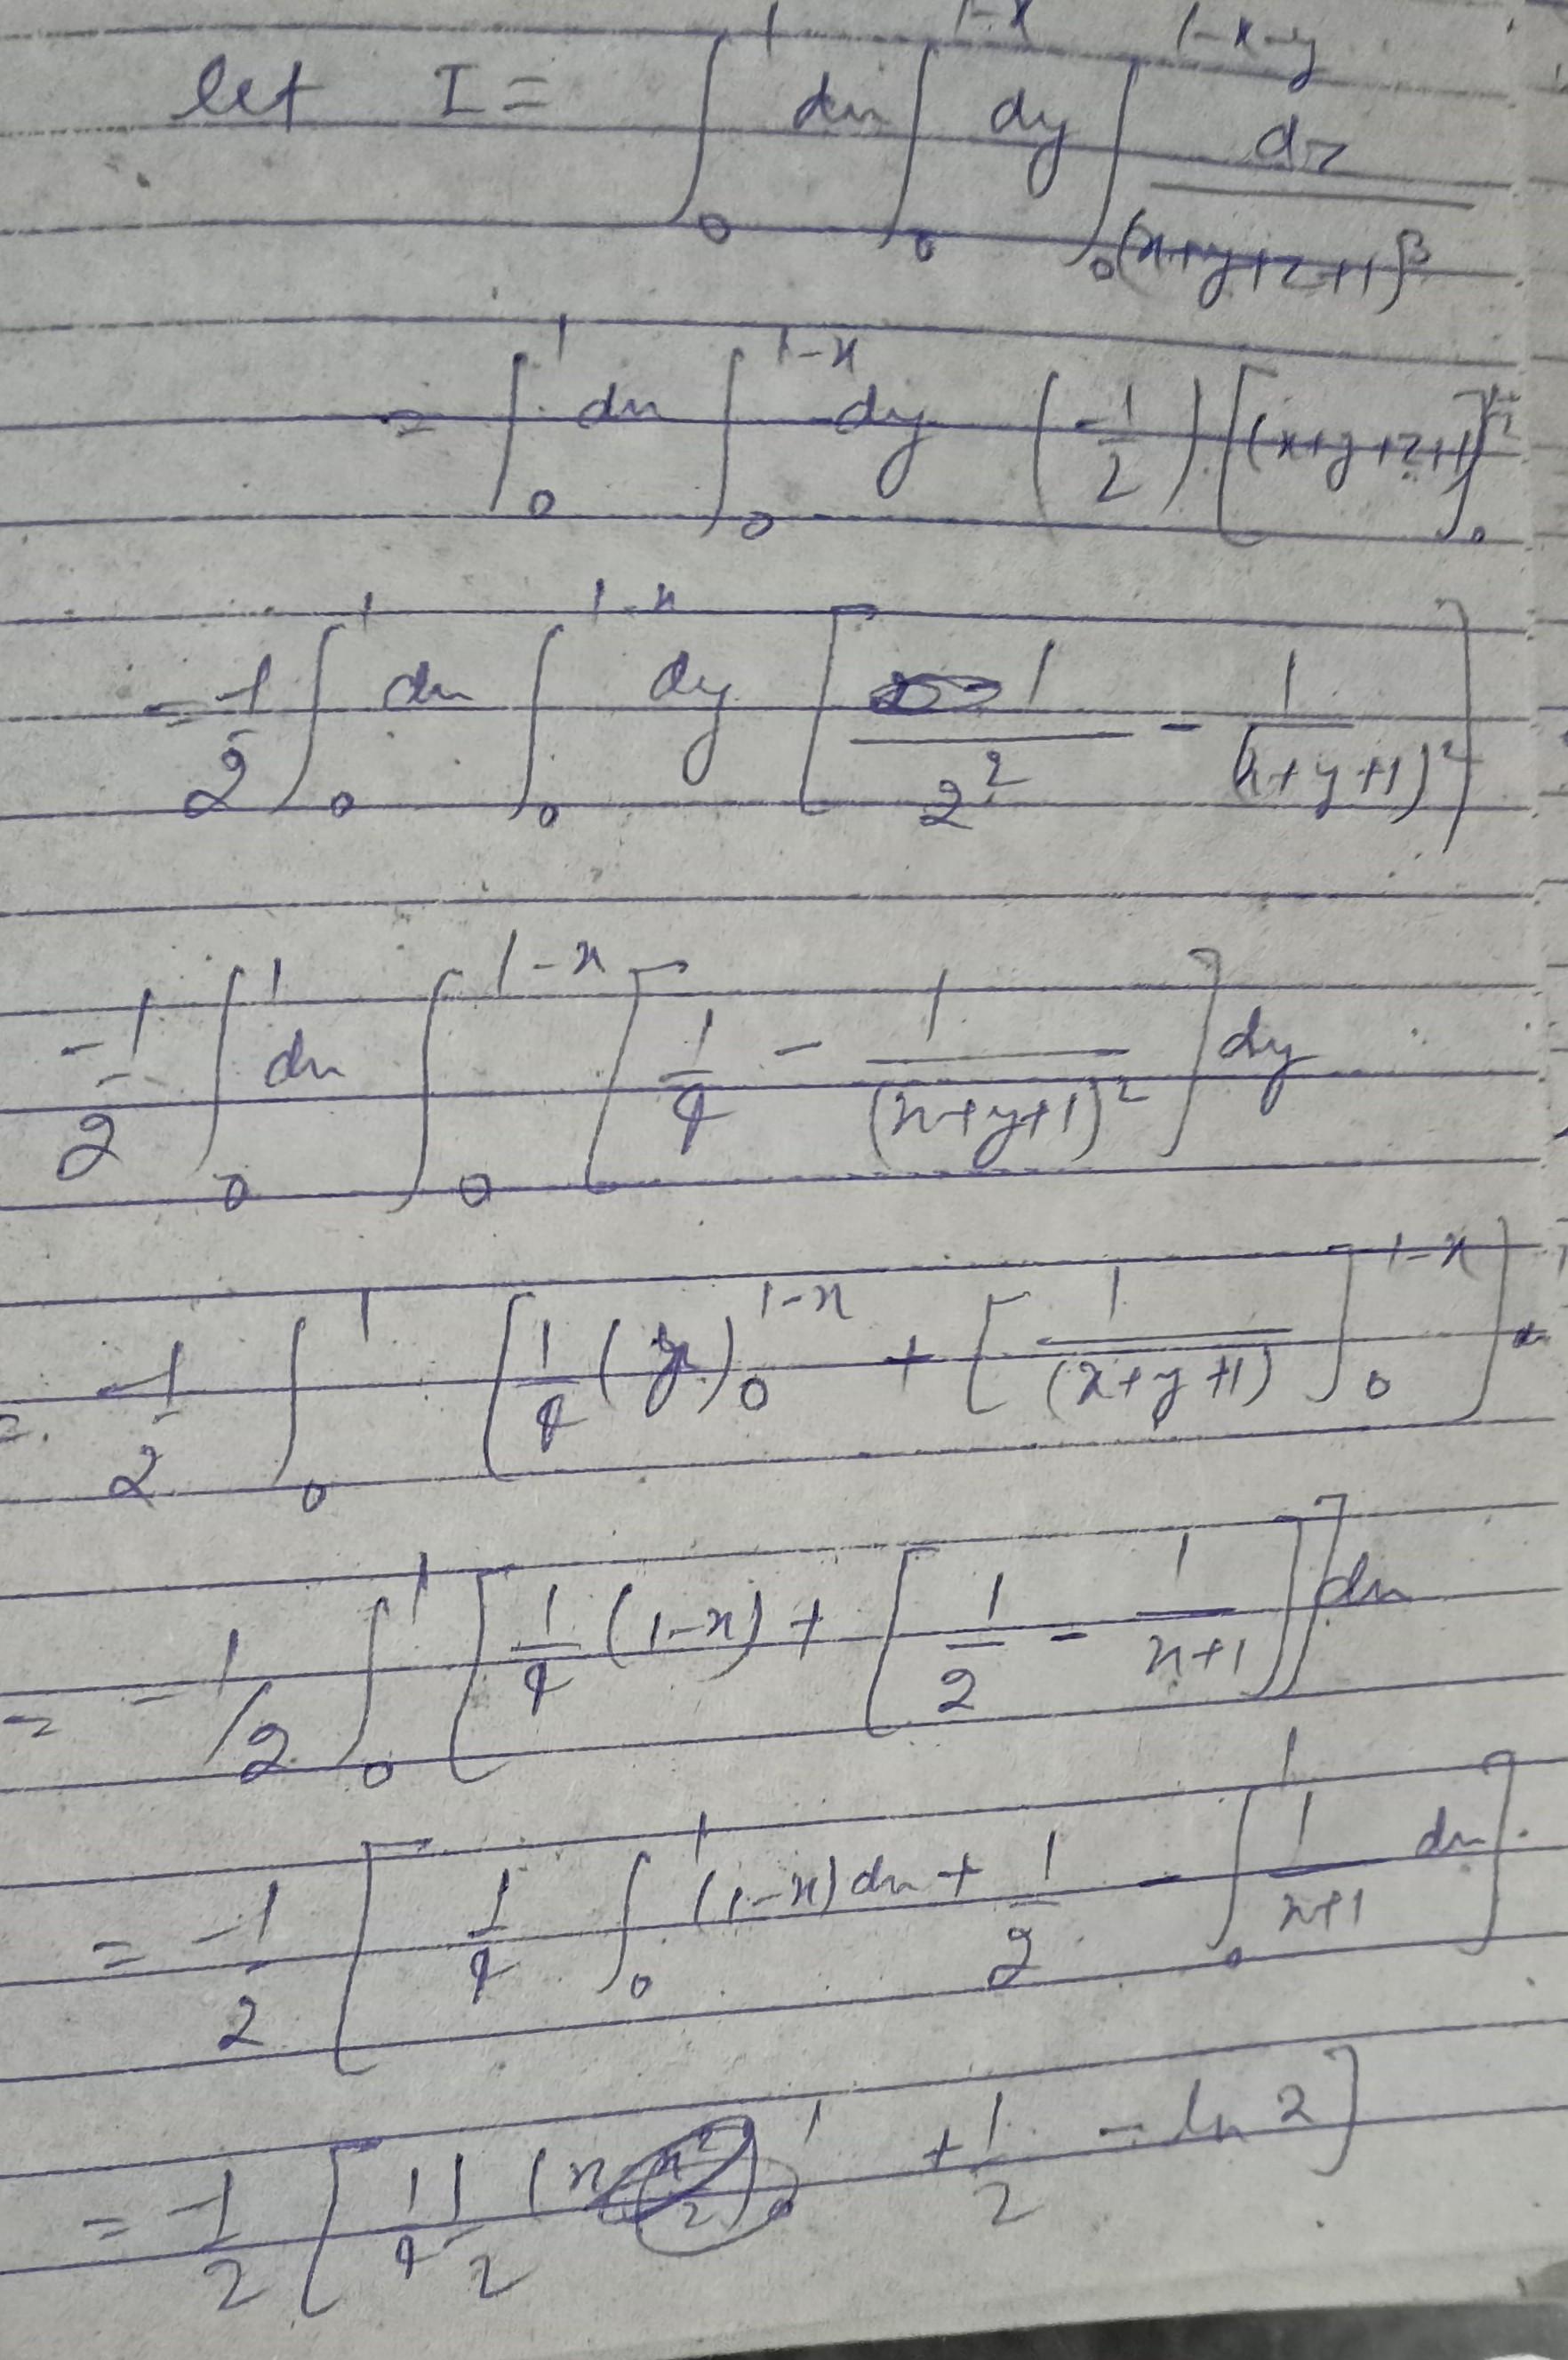 let I = ∫₀¹ dx ∫₀^{1-x} dy ∫₀^{1-x-y} dz/(x+y+z+1)³
= ∫₀¹ dx ∫₀^{1-x} dy (-1/2) [(x+y+z+1)]₀
= -1/2 ∫₀¹ dx ∫₀^{1-x} dy [1/2² - 1/(x+y+1)²]
-1/2 ∫₀¹ dx ∫₀^{1-x} [1/4 - 1/(x+y+1)²] dy
= -1/2 ∫₀¹ [1/4 (y)₀^{1-x} + [1/(x+y+1)]₀^{1-x}]
= -1/2 ∫₀¹ [1/4 (1-x) + [1/2 - 1/(x+1)]] dx
= -1/2 [1/4 ∫₀¹ (1-x) dx + 1/2 - ∫₀¹ 1/(x+1) dx]
= -1/2 [1/4 1/2 + 1/2 - ln 2]